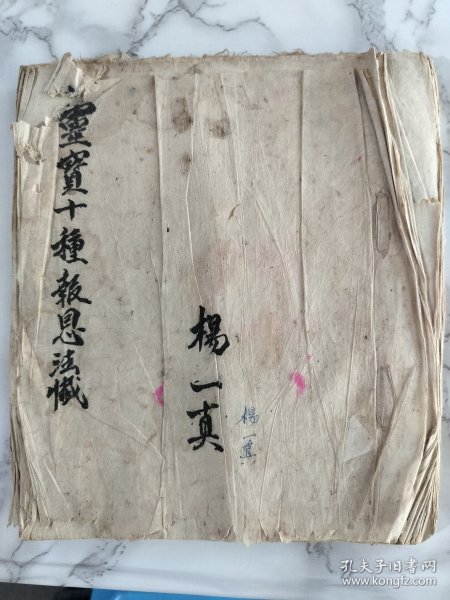 靈寳十種報恩法懺
楊一真
楊一真
孔夫子旧书网
www.kongfz.com